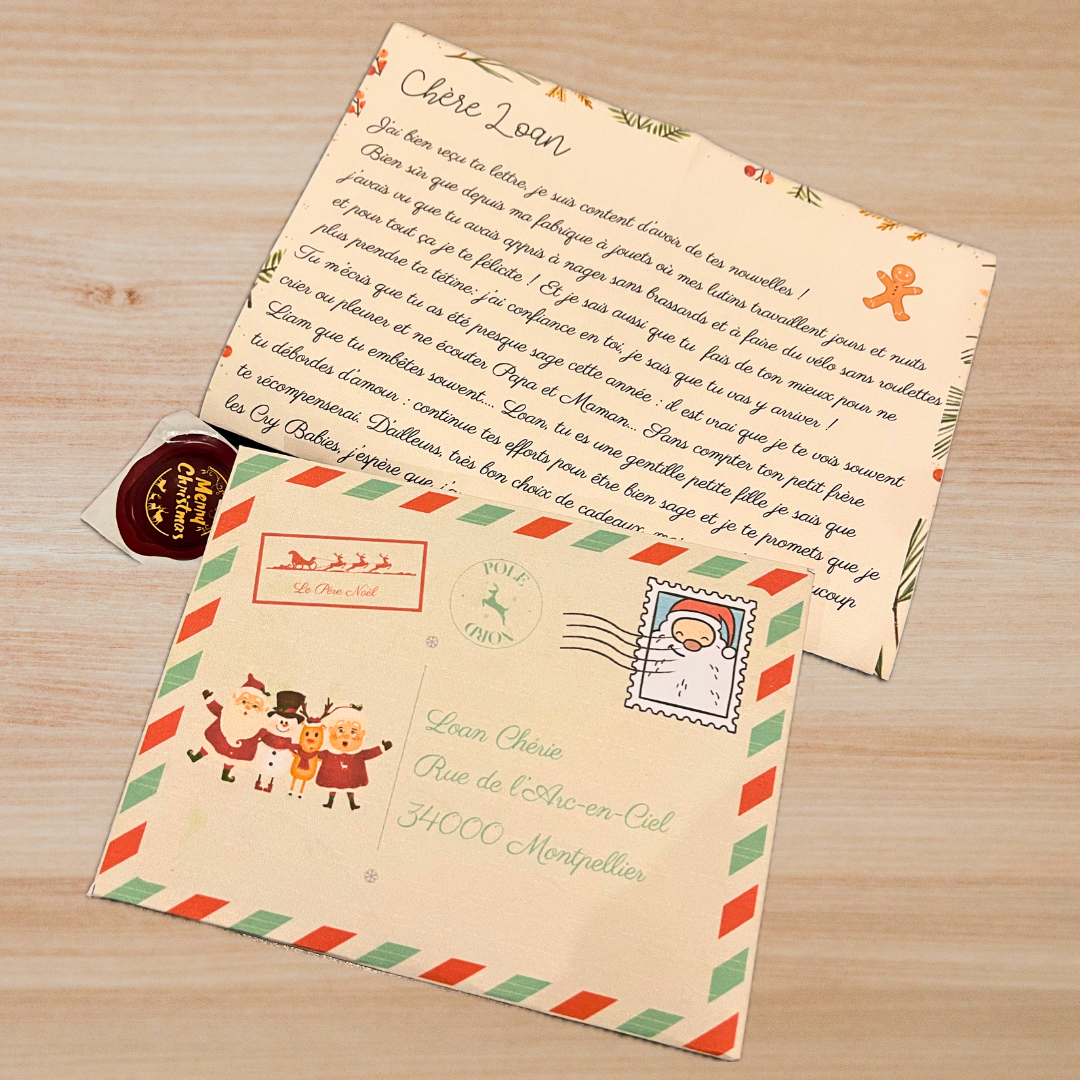 Chère Loan
J'ai bien reçu ta lettre, je suis content d'avoir de tes nouvelles !
Bien sûr que depuis ma fabrique à jouets où mes lutins travaillent jours et nuits
j'avais vu que tu avais appris à nager sans brassards et à faire du vélo sans roulettes
et pour tout ça je te félicite ! Et je sais aussi que tu fais de ton mieux pour ne
plus prendre ta tétine: j'ai confiance en toi, je sais que tu vas y arriver !
Tu m'écris que tu as été presque sage cette année : il est vrai que je te vois souvent
crier ou pleurer et ne écouter Papa et Maman... Sans compter ton petit frère
Liam que tu embêtes souvent.... Loan, tu es une gentille petite fille, je sais que
tu débordes d'amour : continue tes efforts pour être bien sage et je te promets que je
te récompenserai. D'ailleurs, très bon choix de cadeaux
les Cry Babies, j'espère que
Merry
Christmas
Le Père Noël
POLE
NORD
Loan Chérie
Rue de l'Arc-en-Ciel
34000 Montpellier